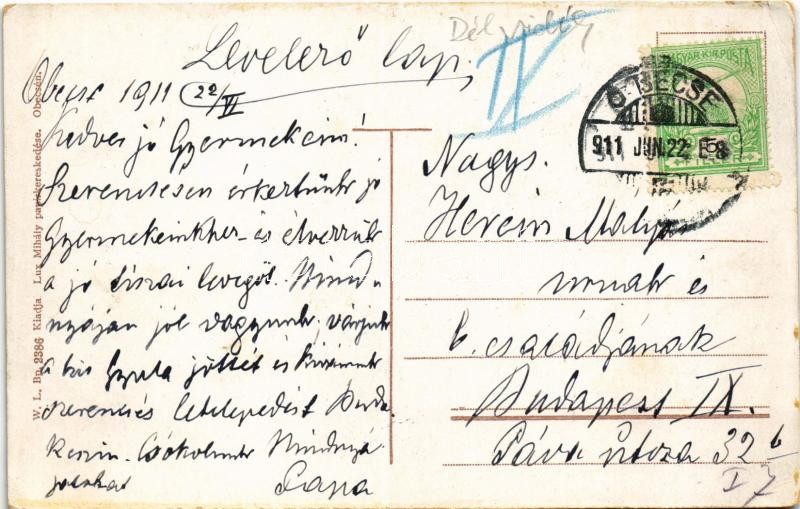 Dél vidék
Levelező lap.
Obecse 1911 22/VI
Kedves jó Gyermekeim!
Szerencsésen érkeztünk jó
Gyermekeinkhez és élvezzük
a jó tiszai levegőt. Mind-
nyájan jól vagyunk, várjuk
a kis Gyula jöttét és kívánunk
szerencsés letelepedést Buda-
keszin. Csókolunk Mindnyá-
jatokat
Papa
MAGYAR KIR. POSTA
5
Ó-BECSE
911 JUN. 22
Nagys.
Mátyás
urnak és
b. családjának
Budapest IX.
Páva utcza 32 b
I 7
W. L., Bp. 2386 Kiadja Lux Mihály papirkereskedése, Obecsén.